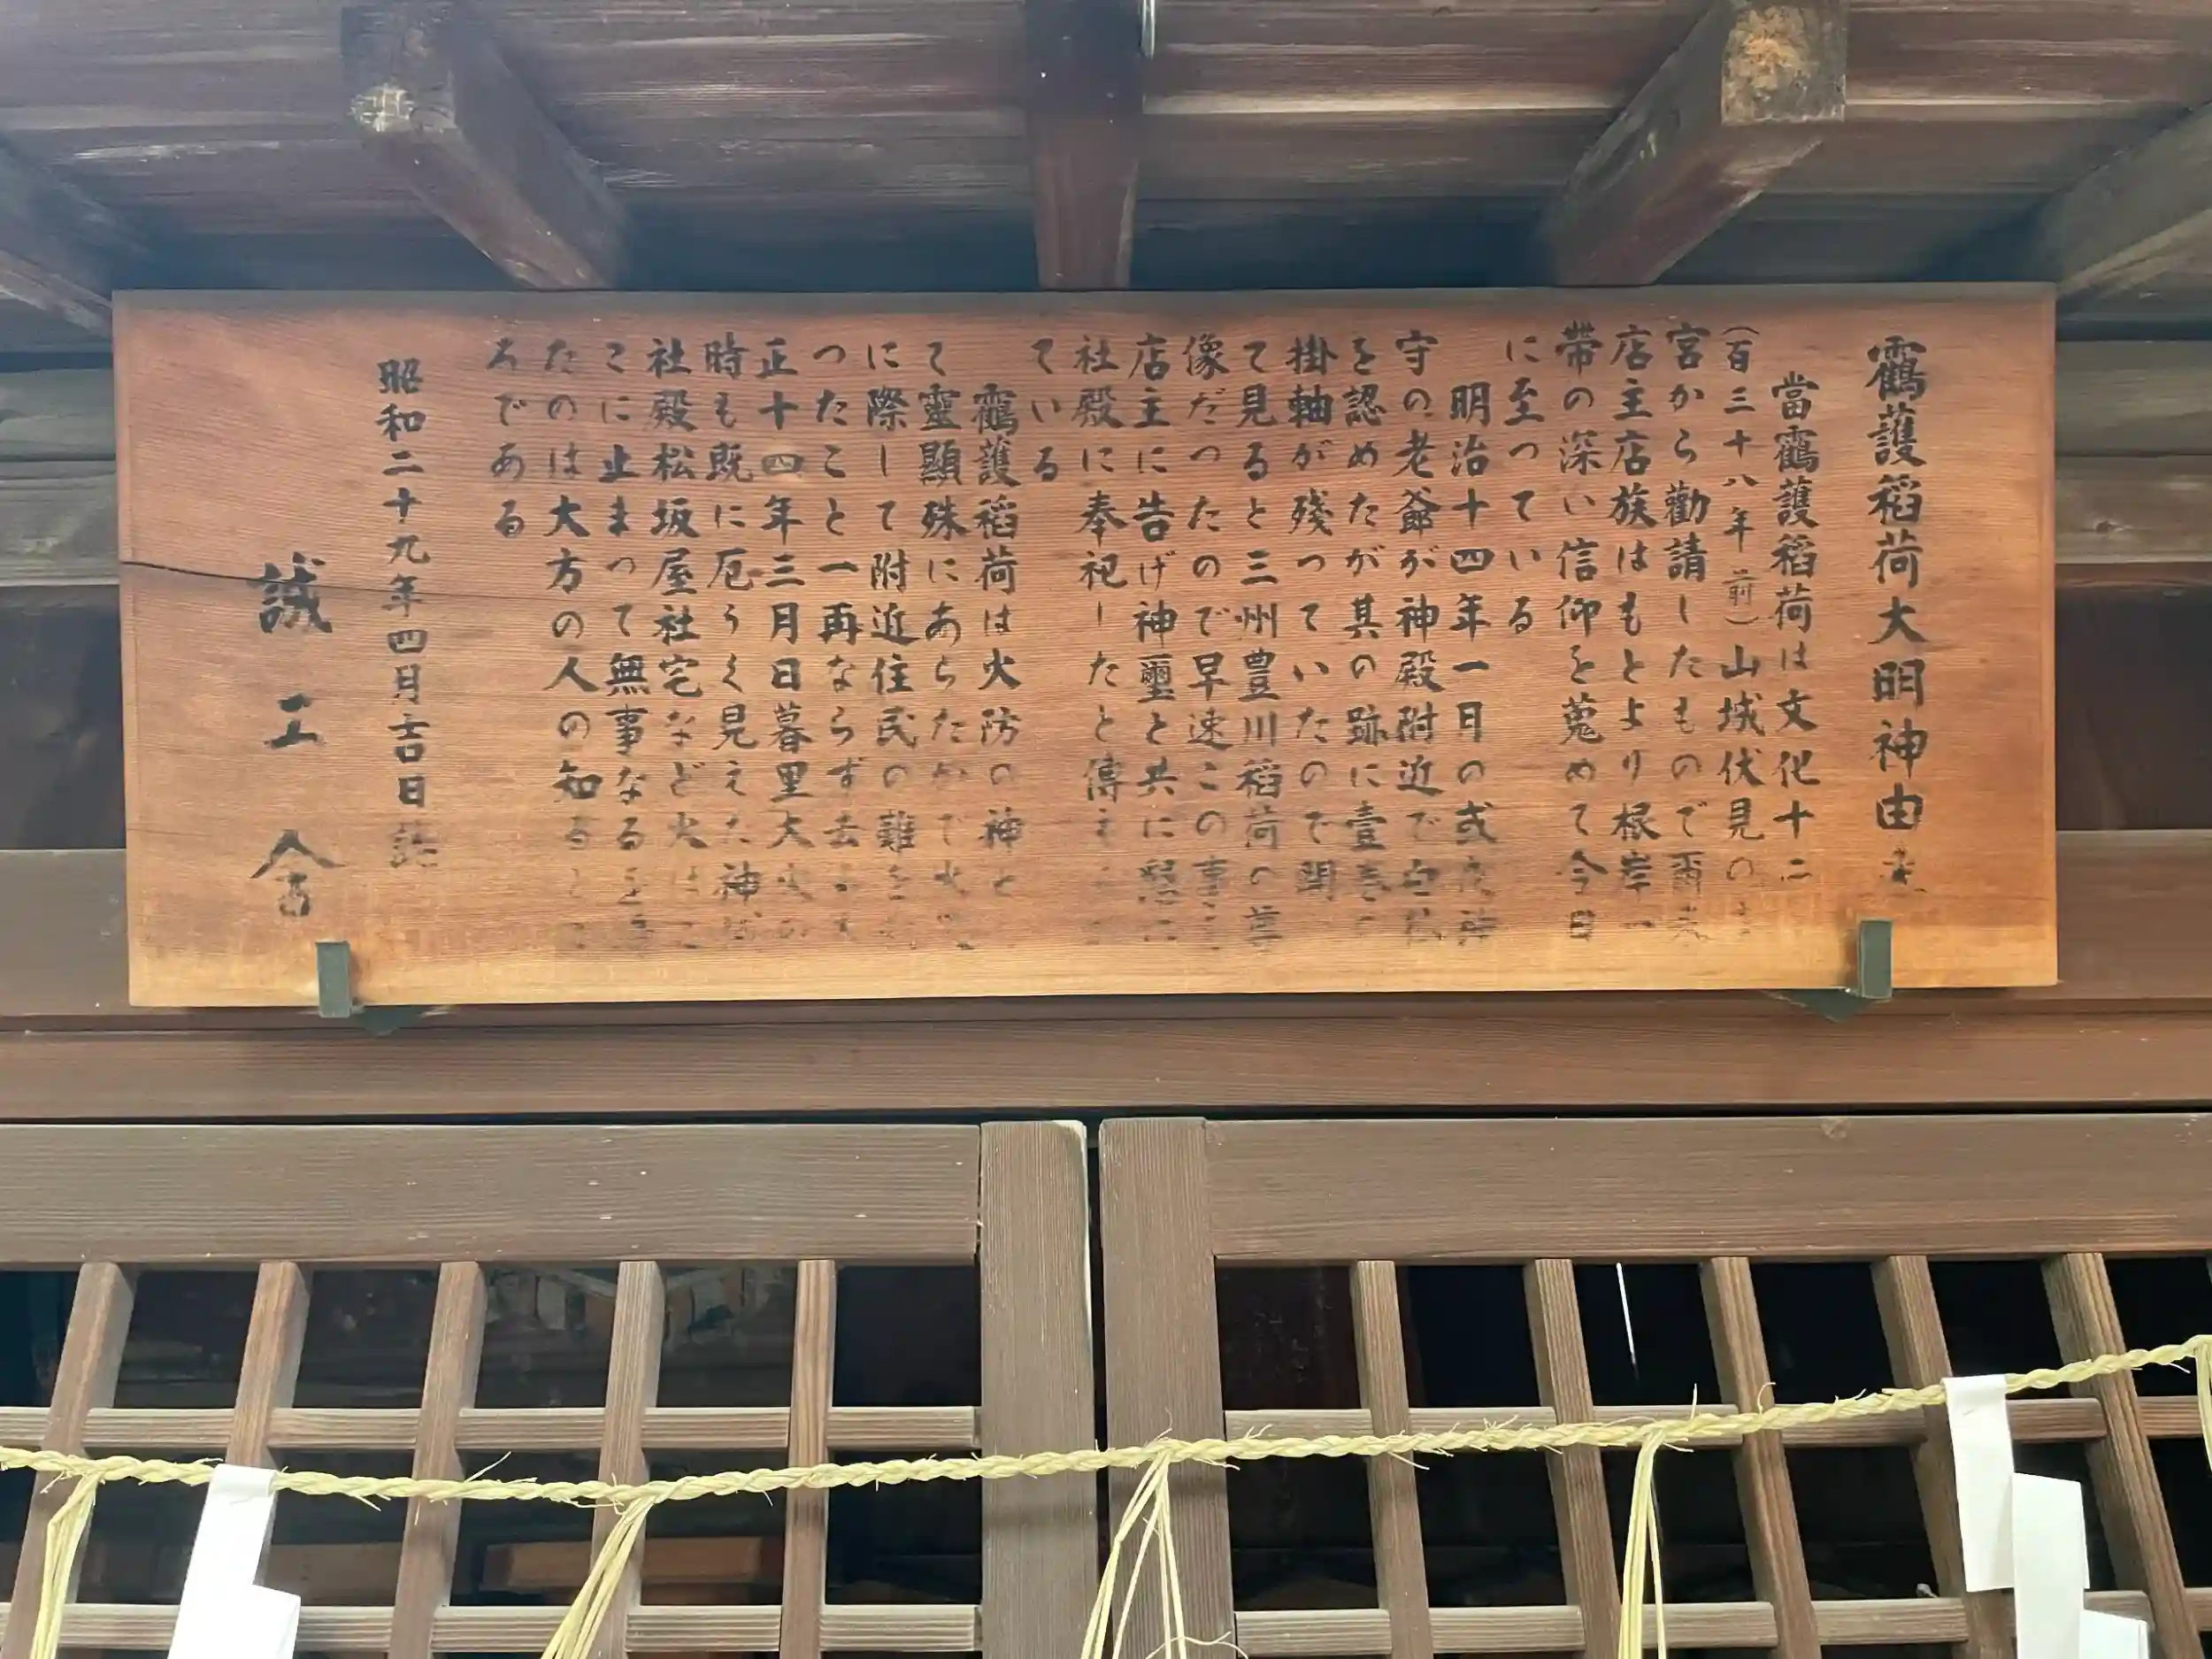 靏護稲荷大明神由来
當靏護稲荷は文化十二
(百三十八年前)山城伏見の
宮から勸請したもので爾来
店主店族はもとより根岸一
帯の深い信仰を蒐めて今日
に至つている
明治十四年一月の或
守の老爺が神殿附近で白狐
を認めたが其の跡に壹
掛軸が残つていたので開
て見ると三州豊川稲荷の尊
像だつたので早速この事
店主に告げ神璽と共に懇に
社殿に奉祀したと傳
ている
靏護稲荷は火防の神と
て靈顯殊にあらたかで火災
に際して附近住民の難を
つたこと一再ならず去
正十四年三月日暮里大火の
時も既に厄うく見えた神域
社殿松坂屋社宅など火はこ
こに止まつて無事なるを得
たのは大方の人の知ると
ろである
昭和二十九年四月吉日誌
誠工舎